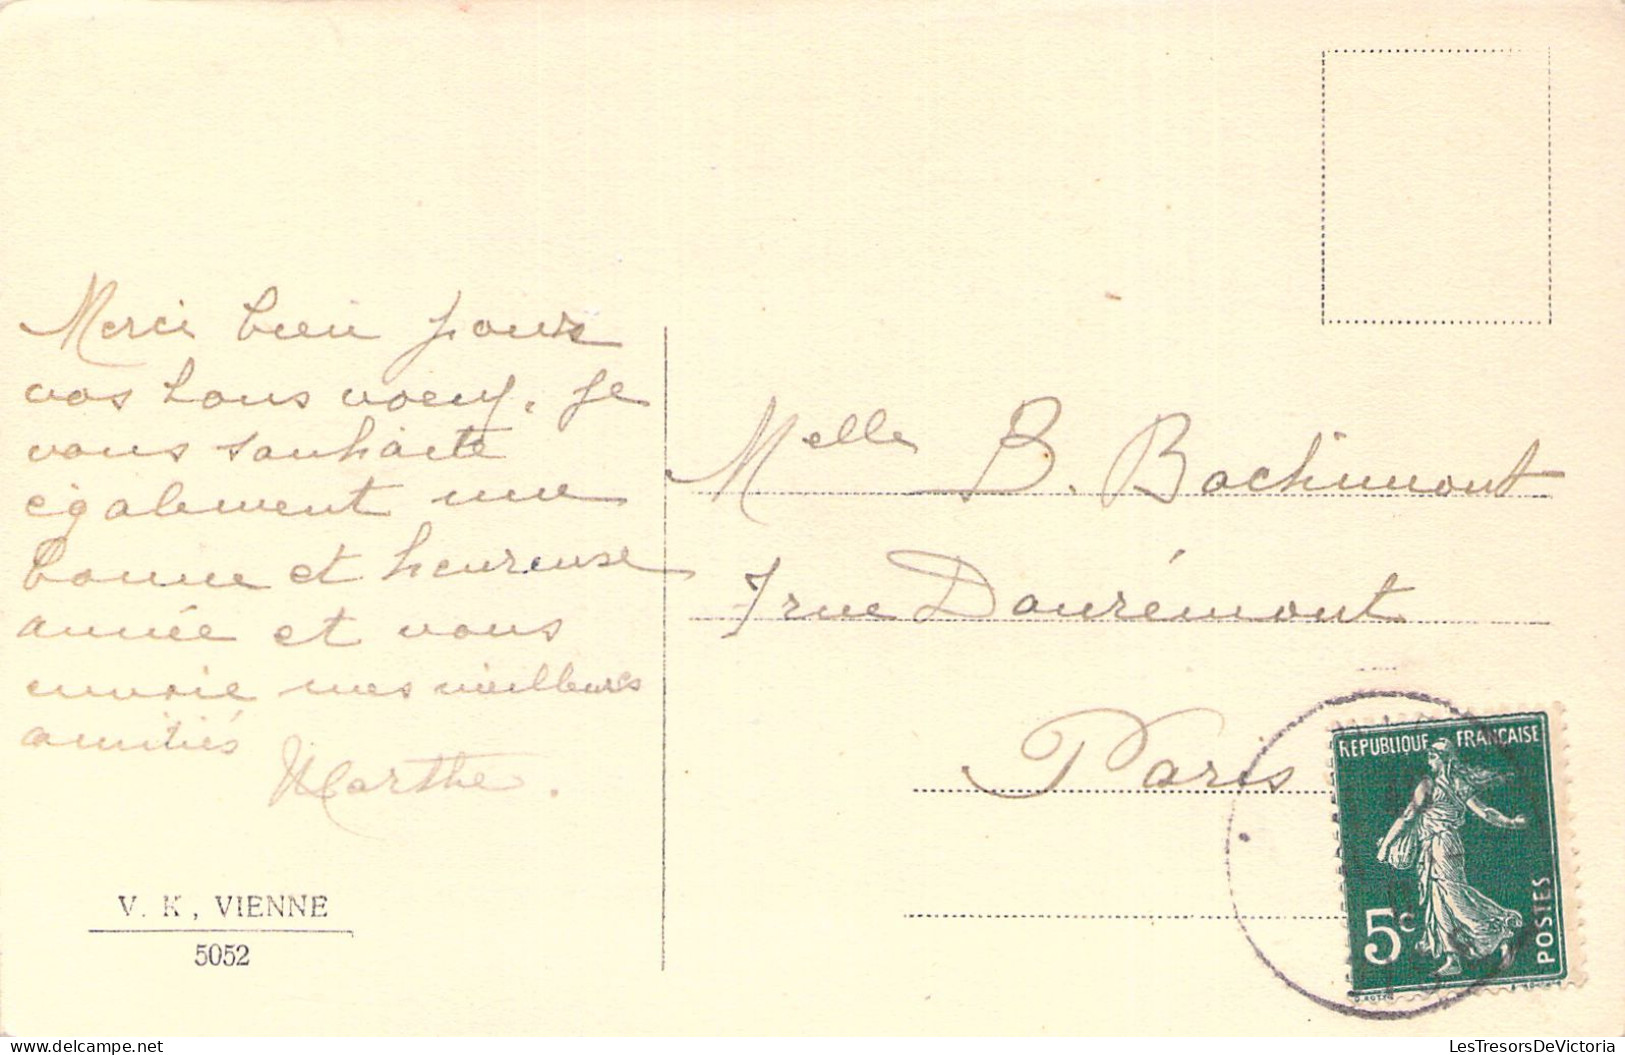 Merci bien pour
vos bons voeux. Je
vous souhaite
également une
bonne et heureuse
année et vous
envoie mes meilleures
amitiés
Marthe.
V. K, VIENNE
5052
Melle B. Bachimont
7 rue Daurémont
Paris
REPUBLIQUE FRANÇAISE
5c
POSTES
LesTresorsDeVictoria